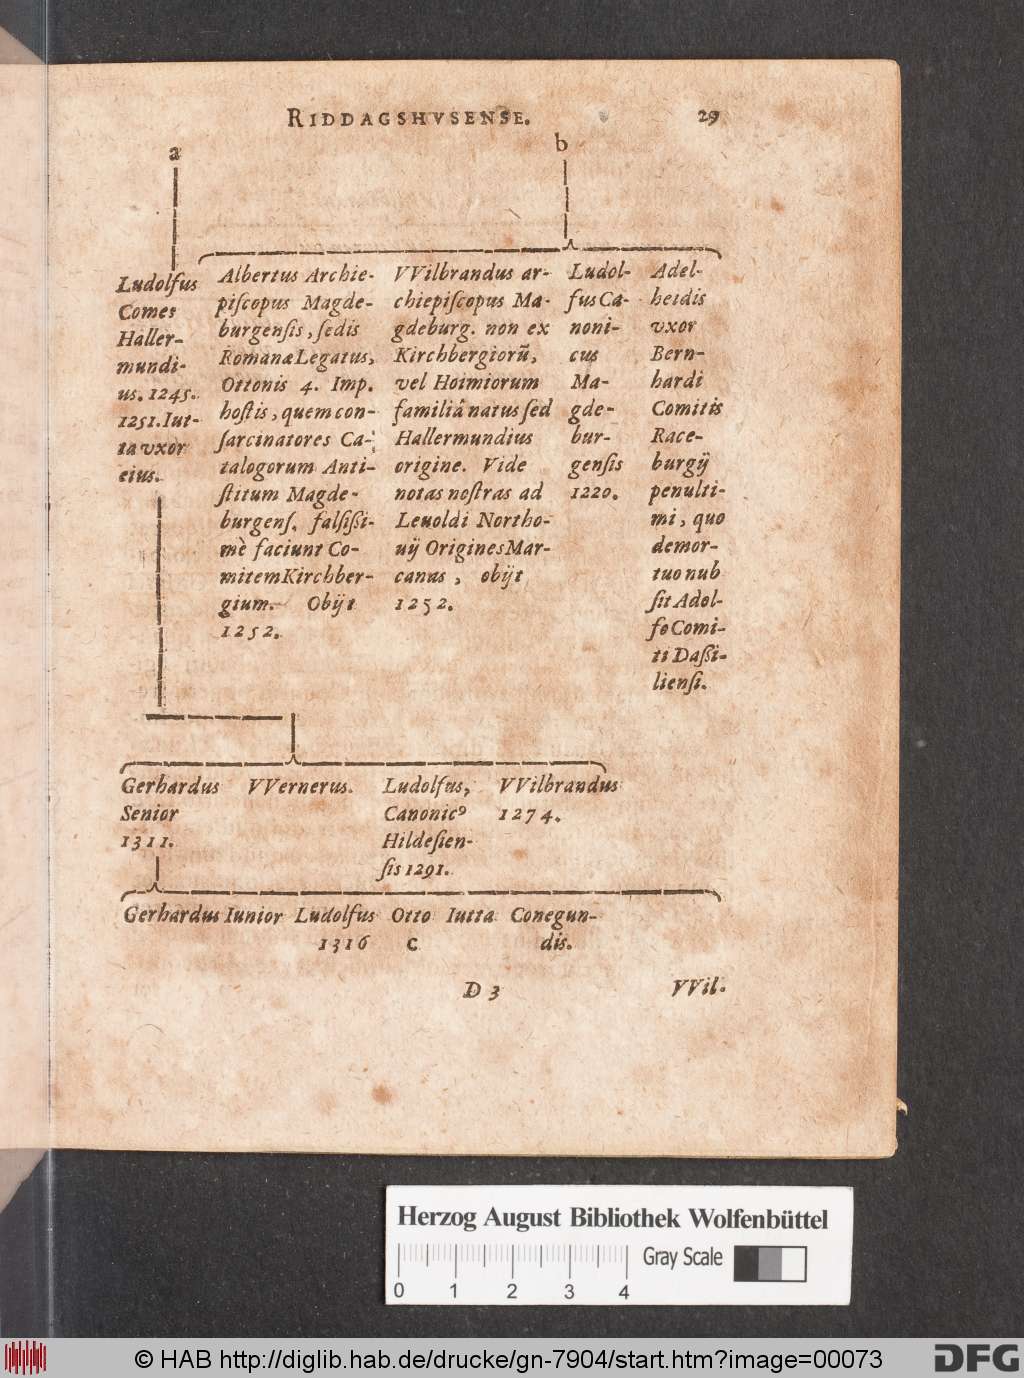 RIDDAGSHVSENSE. 29
a
b
Ludolfus
Comes
Haller-
mundi-
us. 1245.
1251. Iut-
ta vxor
eius.
Albertus Archie-
piſcopus Magde-
burgenſis, ſedis
Romanæ Legatus,
Ottonis 4. Imp.
hoſtis, quem con-
ſarcinatores Ca-
talogorum Anti-
ſtitum Magde-
burgenſ. falſißi-
mè faciunt Co-
mitem Kirchber-
gium. Obijt
1252.
VVilbrandus ar-
chiepiſcopus Ma-
gdeburg. non ex
Kirchbergiorũ,
vel Hoimiorum
familiâ natus ſed
Hallermundius
origine. Vide
notas noſtras ad
Leuoldi Northo-
uij Origines Mar-
canas, obijt
1252.
Ludol-
fus Ca-
noni-
cus
Ma-
gde-
bur-
genſis
1220.
Adel-
heidis
vxor
Bern-
hardi
Comitis
Race-
burgij
penulti-
mi, quo
demor-
tuo nub
ſit Adol-
fo Comi-
ti Daßi-
lienſi.
Gerhardus
Senior
1311.
VVernerus.
Ludolfus,
Canonicꝰ
Hildeſien-
ſis 1291.
VVilbrandus
1274.
Gerhardus Iunior Ludolfus Otto Iutta Conegun-
1316 c dis.
D 3 VVil.
Herzog August Bibliothek Wolfenbüttel
Gray Scale
0 1 2 3 4
© HAB http://diglib.hab.de/drucke/gn-7904/start.htm?image=00073
DFG